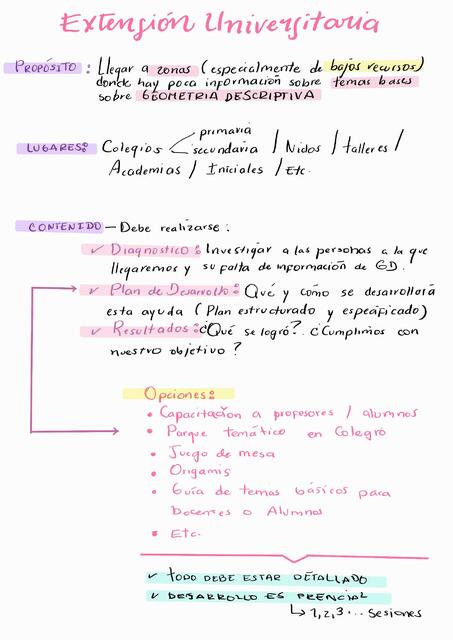 Extensión Universitaria
PROPÓSITO: Llegar a zonas (especialmente de bajos recursos)
donde hay poca información sobre temas bases
sobre GEOMETRIA DESCRIPTIVA
primaria
LUGARES: Colegios secundaria / Nidos / talleres /
Academias / Iniciales / Etc.
CONTENIDO - Debe realizarse:
✓ Diagnostico: Investigar a las personas a la que
llegaremos y su falta de información de GD.
✓ Plan de Desarrollo: Qué y cómo se desarrollará
esta ayuda (Plan estructurado y especificado)
✓ Resultados: ¿Qué se logró? ¿Cumplimos con
nuestro objetivo?
Opciones:
• Capacitación a profesores / alumnos
• Parque temático en Colegio
• Juego de mesa
• Origamis
• Guía de temas básicos para
Docentes o Alumnos
• Etc.
✓ TODO DEBE ESTAR DETALLADO
✓ DESARROLLO ES PRENCIAL
↳ 1,2,3... sesiones